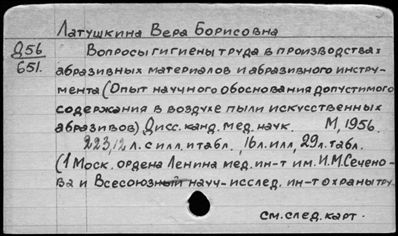 Латушкина Вера Борисовна
Д56 Вопросы гигиены труда в производствах
651. абразивных материалов и абразивного инстру-
мента (Опыт научного обоснования допустимого
содержания в воздухе пыли искусственных
абразивов) Дисс. канд. мед. наук. М, 1956.
223,12 л. с илл. и табл., 16 л. илл, 29 л. табл.
(1 Моск. ордена Ленина мед. ин-т им. И.М. Сечено-
ва и Всесоюзный науч-исслед. ин-т охраны тру.
см. след. карт.